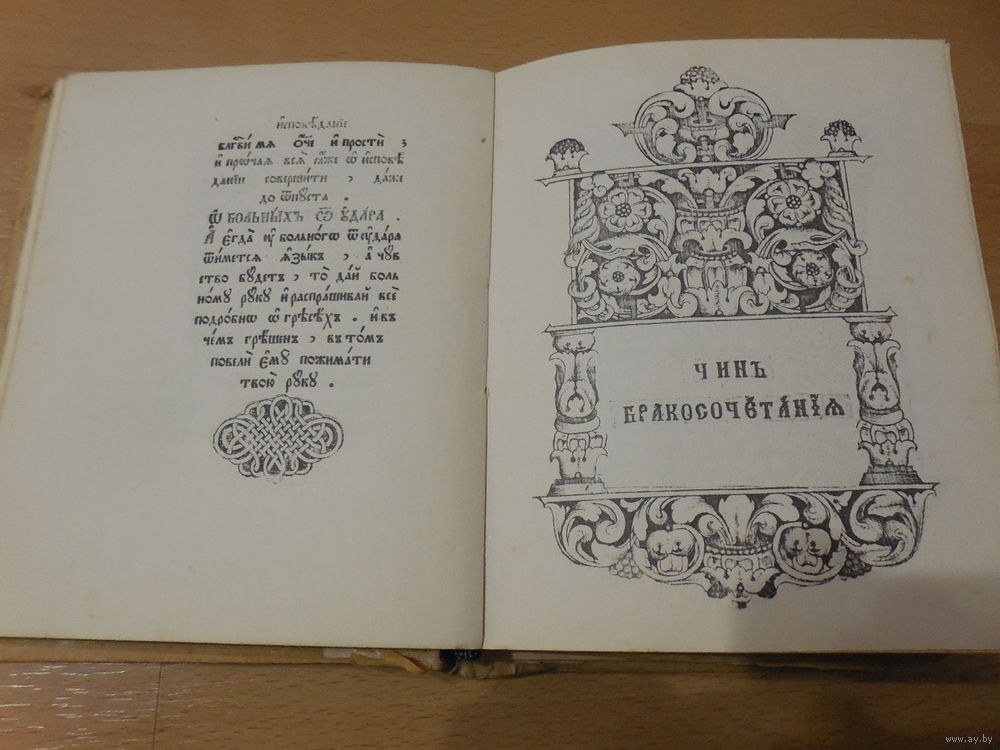 и҆сповѣ́данїе
блг҃ви́ мѧ ѻ҆́ч҃е и҆ простѝ з
и҆ про́чаѧ всѧ̑ ꙗ҆́же ѡ҆ и҆сповѣ́
данїи соверши́ти , да́же
до ѿпу́ста .
Ѡ҆ БОЛЬНЫ́ХЪ Ѿ ᲂУ҆ДА́РА .
А҆ є҆гда̀ ᲂу҆ больно́гѡ ѿ ᲂу҆да́рѧ
ѿи́метсѧ ꙗ҆зы́къ , а҆ чꙋ́в
ство бꙋ́детъ , то̀ да́й боль
но́мꙋ рꙋ́кꙋ и҆ распра́шивай всѐ
подро́бнѡ ѡ҆ грѣсѣ́хъ . и҆ въ
че́мъ грѣ́шенъ , въ то́мъ
повелѝ є҆мꙋ̀ пожима́ти
твою̀ рꙋ́кꙋ .
ЧИНЪ
БРАКОСОЧЕТА́НЇѦ
www.ay.by